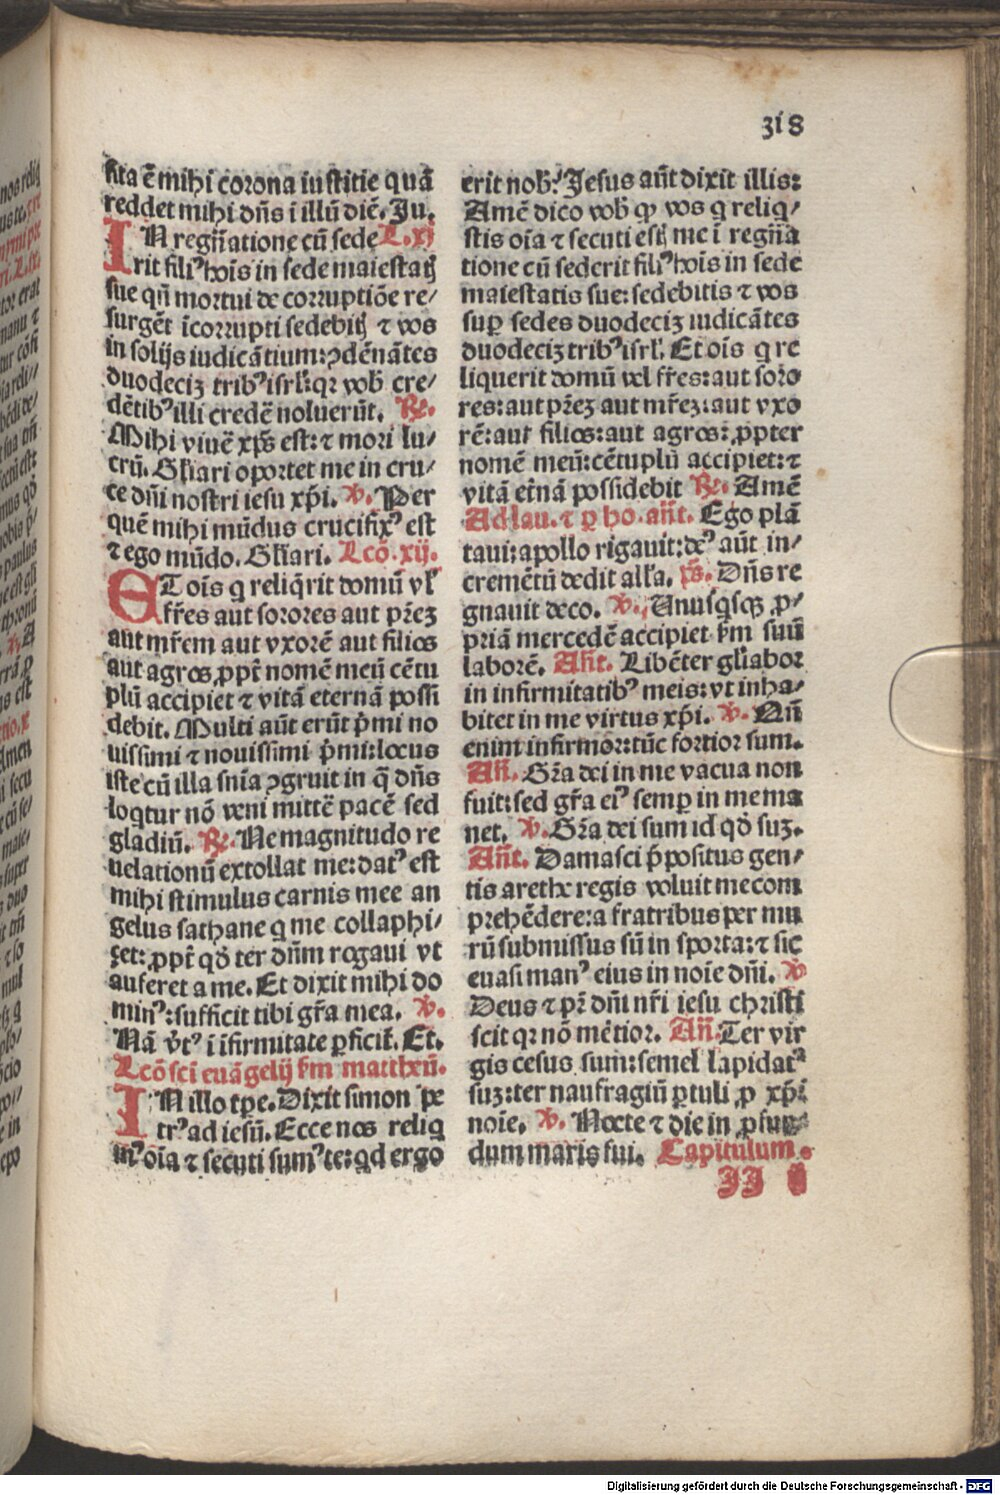 318
sita ē mihi corona iustitie quā
reddet mihi dñs ī illū diē. Ju.
IN regñatione cū sede L. xj
rit filiꝰ hoīs in sede maiestatꝭ
sue qñ mortui de corruptiōe re/
surgēt īcorrupti sedebitꝭ ⁊ vos
in solijs iudicātium: ꝯdēnātes
duodeciꝫ tribꝰ isrl̄: qꝛ vob̄ cre/
dētibꝰ illi credē noluerūt. ℟.
Mihi viuē xp̄s est: ⁊ mori lu/
crū. Gl̄iari oportet me in cru/
ce dñi nostri iesu xp̄i. ℣. Per
quē mihi mūdus crucifixꝰ est
⁊ ego mūdo. Gl̄iari. Lcō. xij.
ET oīs q reliq̄rit domū vl̄
fr̄es aut sorores aut pr̄eꝫ
aut mr̄em aut vxorē aut filios
aut agros ꝓpt̄ nomē meū cētu
plū accipiet ⁊ vitā eternā possi
debit. Multi aūt erūt p̄mi no
uissimi ⁊ nouissimi p̄mi: locus
iste cū illa snīa ꝯgruit in q̄ dñs
loqtur nō veni mittē pacē sed
gladiū. ℟. Ne magnitudo re
uelationū extollat me: datꝰ est
mihi stimulus carnis mee an
gelus sathane q me collaphi/
ꝫet: ꝓpt̄ qd̄ ter dñm rogaui vt
auferet a me. Et dixit mihi do
minꝰ: sufficit tibi gr̄a mea. ℣.
Nā v̄tꝰ ī īfirmitate ꝑficit̄. Et.
Lcō sc̄i euāgelij ẜm mattheū.
IN illo tp̄e. Dixit simon pe
trꝰ ad iesū. Ecce nos reliq
mꝰ oīa ⁊ secuti sumꝰ te: qd ergo
erit nob̄? Jesus aūt dixit illis:
Amē dico vob̄ ꝙ vos q reliq/
stis oīa ⁊ secuti estꝭ me ī regñia
tione cū sederit filiꝰ hoīs in sede
maiestatis sue: sedebitis ⁊ vos
suꝑ sedes duodeciꝫ iudicātes
duodeciꝫ tribꝰ isrl̄. Et oīs q re
liquerit domū vel fr̄es: aut soro
res: aut pr̄eꝫ aut mr̄eꝫ: aut vxo
rē: aut filios: aut agros: ꝓpter
nomē meū: cētuplū accipiet: ⁊
vitā et̄nā possidebit ℟. Amē
Ad lau. ⁊ ꝑ ho. añt. Ego plā
taui: apollo rigauit: deꝰ aūt in/
cremētū dedit all̄a. p̄s. Dñs re
gnauit deco. ℣. Unusqsqꝫ ꝓ/
priā mercedē accipiet ẜm suū
laborē. Añt. Libēter gl̄iabor
in infirmitatibꝰ meis: vt inha/
bitet in me virtus xp̄i. ℣. Qñ
enim infirmor: tūc fortior sum.
Añ. Gr̄a dei in me vacua non
fuit: sed gr̄a eiꝰ semꝑ in me ma
net. ℣. Gr̄a dei sum id qd̄ suꝫ.
Añt. Damasci p̄positus gen/
tis arethe regis voluit me com
prehēdere: a fratribus per mu
rū submissus sū in sporta: ⁊ sic
euasi manꝰ eius in noīe dñi. ℣
Deus ⁊ pr̄ dñi nr̄i iesu christi
scit qꝛ nō mētior. Añ. Ter vir
gis cesus sum: semel lapidatꝰ
suꝫ: ter naufragiū ꝑtuli ꝓ xp̄i
noīe. ℣. Nocte ⁊ die in ꝓfun
dum maris fui. Capitulum.
JJ
Digitalisierung gefördert durch die Deutsche Forschungsgemeinschaft - DFG